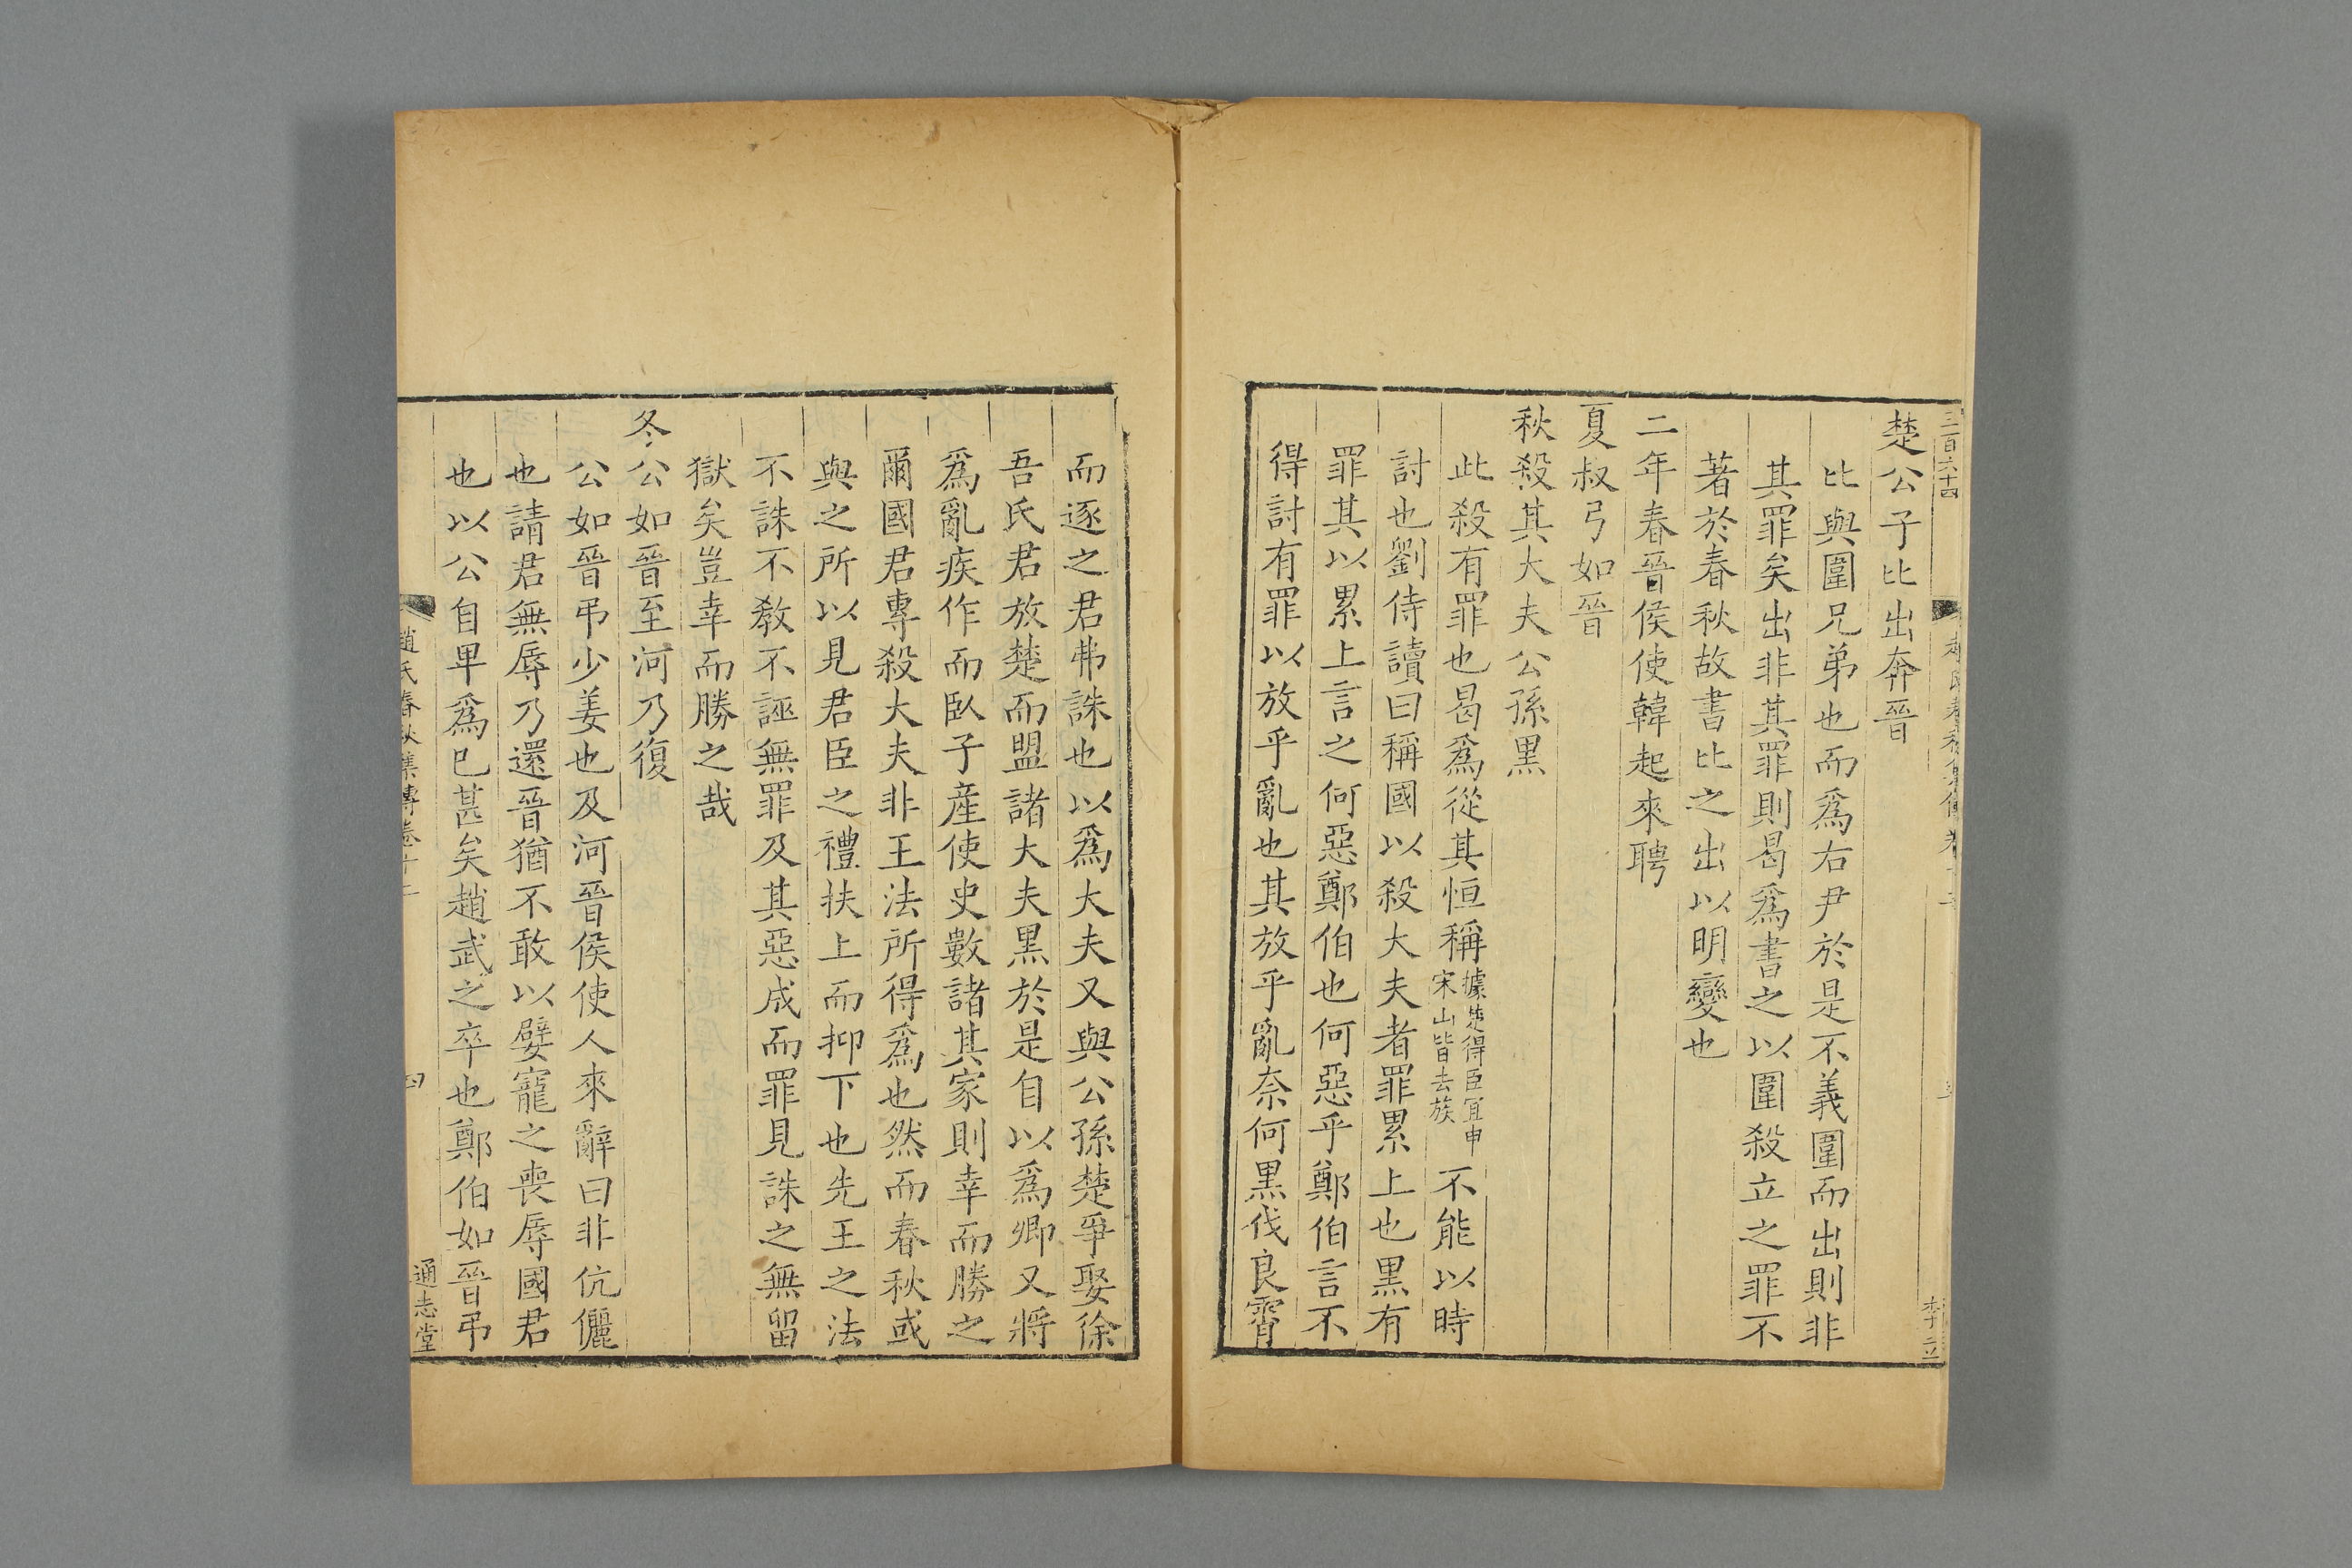 三百六十四
楚公子比出奔晉
比與圍兄弟也而爲右尹於是不義圍而出則非
其罪矣出非其罪則曷爲書之以圍殺立之罪不
著於春秋故書比之出以明變也
二年春晉侯使韓起來聘
夏叔弓如晉
秋殺其大夫公孫黑
此殺有罪也曷爲從其恒稱據楚得臣宜申宋山皆去族不能以時
討也劉侍讀曰稱國以殺大夫者罪累上也黑有
罪其以累上言之何惡鄭伯也何惡乎鄭伯言不
得討有罪以放乎亂也其放乎亂奈何黑伐良霄
而逐之君弗誅也以爲大夫又與公孫楚爭娶徐
吾氏君放楚而盟諸大夫黑於是自以爲卿又將
爲亂疾作而臥子産使吏數諸其家則幸而勝之
爾國君專殺大夫非王法所得爲也然而春秋或
與之所以見君臣之禮扶上而抑下也先王之法
不誅不教不誣無罪及其惡成而罪見誅之無留
獄矣豈幸而勝之哉
冬公如晉至河乃復
公如晉弔少姜也及河晉侯使人來辭曰非伉儷
也請君無辱乃還晉猶不敢以嬖寵之喪辱國君
也以公自卑爲已甚矣趙武之卒也鄭伯如晉弔
趙氏春秋集傳卷十二
四
通志堂